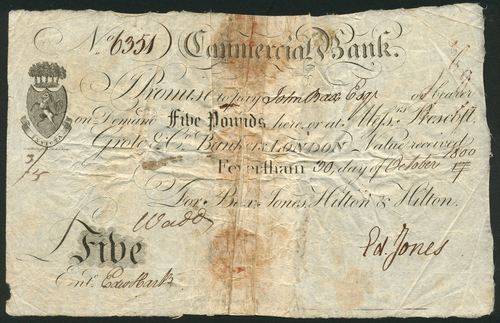 No. 6351 Commercial Bank.
I Promise to pay John Bax Esqr. or bearer
on Demand Five Pounds here, or at Messrs. Prescott,
Grote & Co. Bankers LONDON Value received
Feversham 30 day of October 1800
For Bax Jones, Hilton & Hilton.
Five
Entd.
Ed. Jones